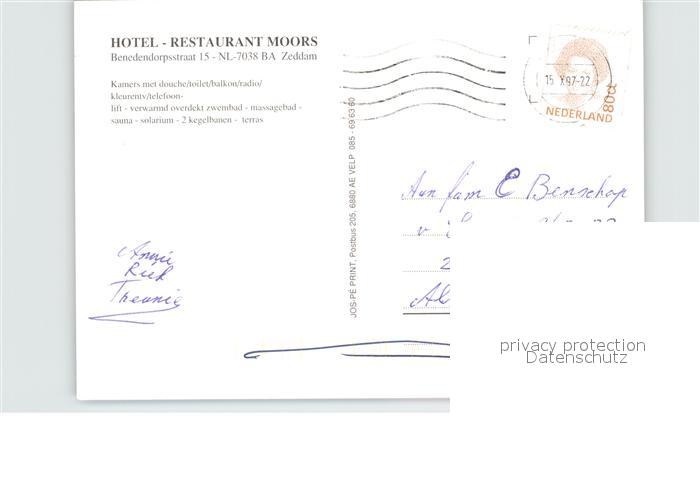 HOTEL - RESTAURANT MOORS
Benedendorpsstraat 15 - NL-7038 BA Zeddam
Kamers met douche/toilet/balkon/radio/
kleurentv/telefoon-
lift - verwarmd overdekt zwembad - massagebad -
sauna - solarium - 2 kegelbanen - terras
Annie
Riek
Theunie
JOS-PÉ PRINT, Postbus 205, 6880 AE VELP 085 - 69 63 60
15 X 97-22
80ct
NEDERLAND
Aan fam C Benschop
v
2
Al
privacy protection
Datenschutz